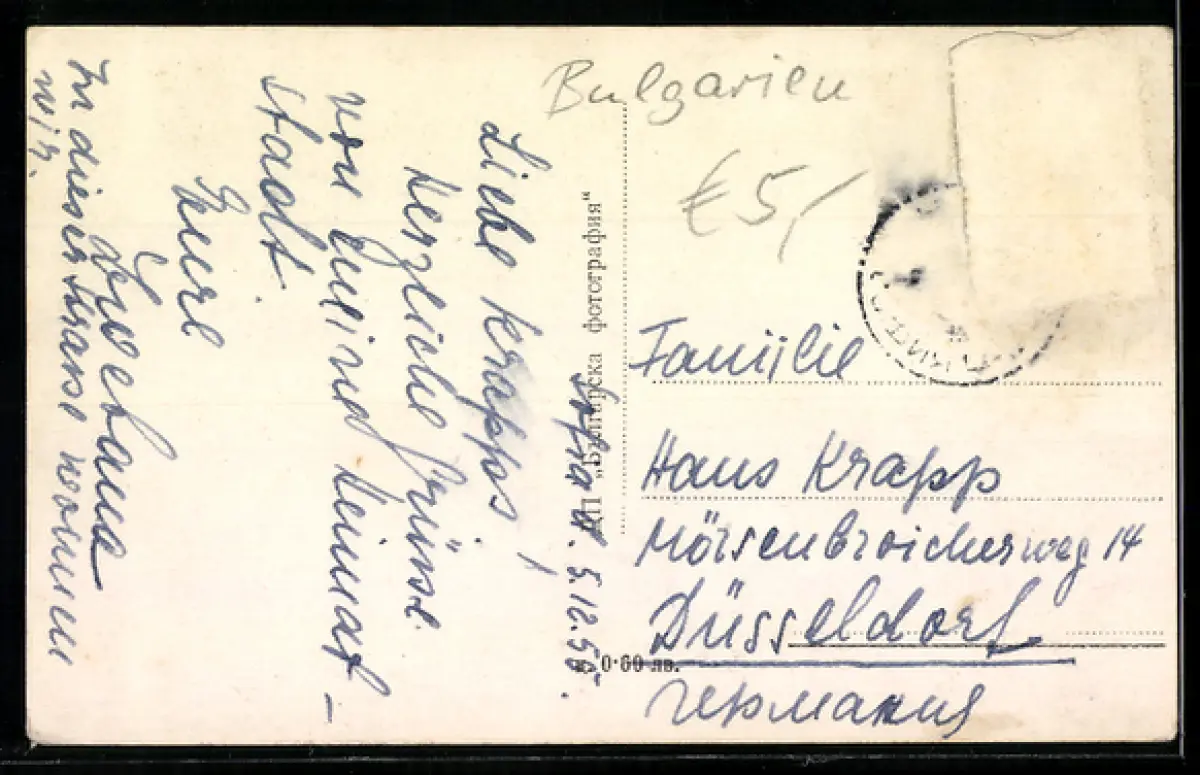 Bulgarien
€ 5,-
Sofia d. 5.12.55.
Liebe Krapps!
Herzliche Grüsse
von meiner Heimat-
stadt.
Eure
In dieser Strasse wohnen
wir.
ДП „Българска фотография“
ц. 0·60 лв.
Familie
Hans Krapp
Mörsenbroicherweg 14
Düsseldorf
Германия